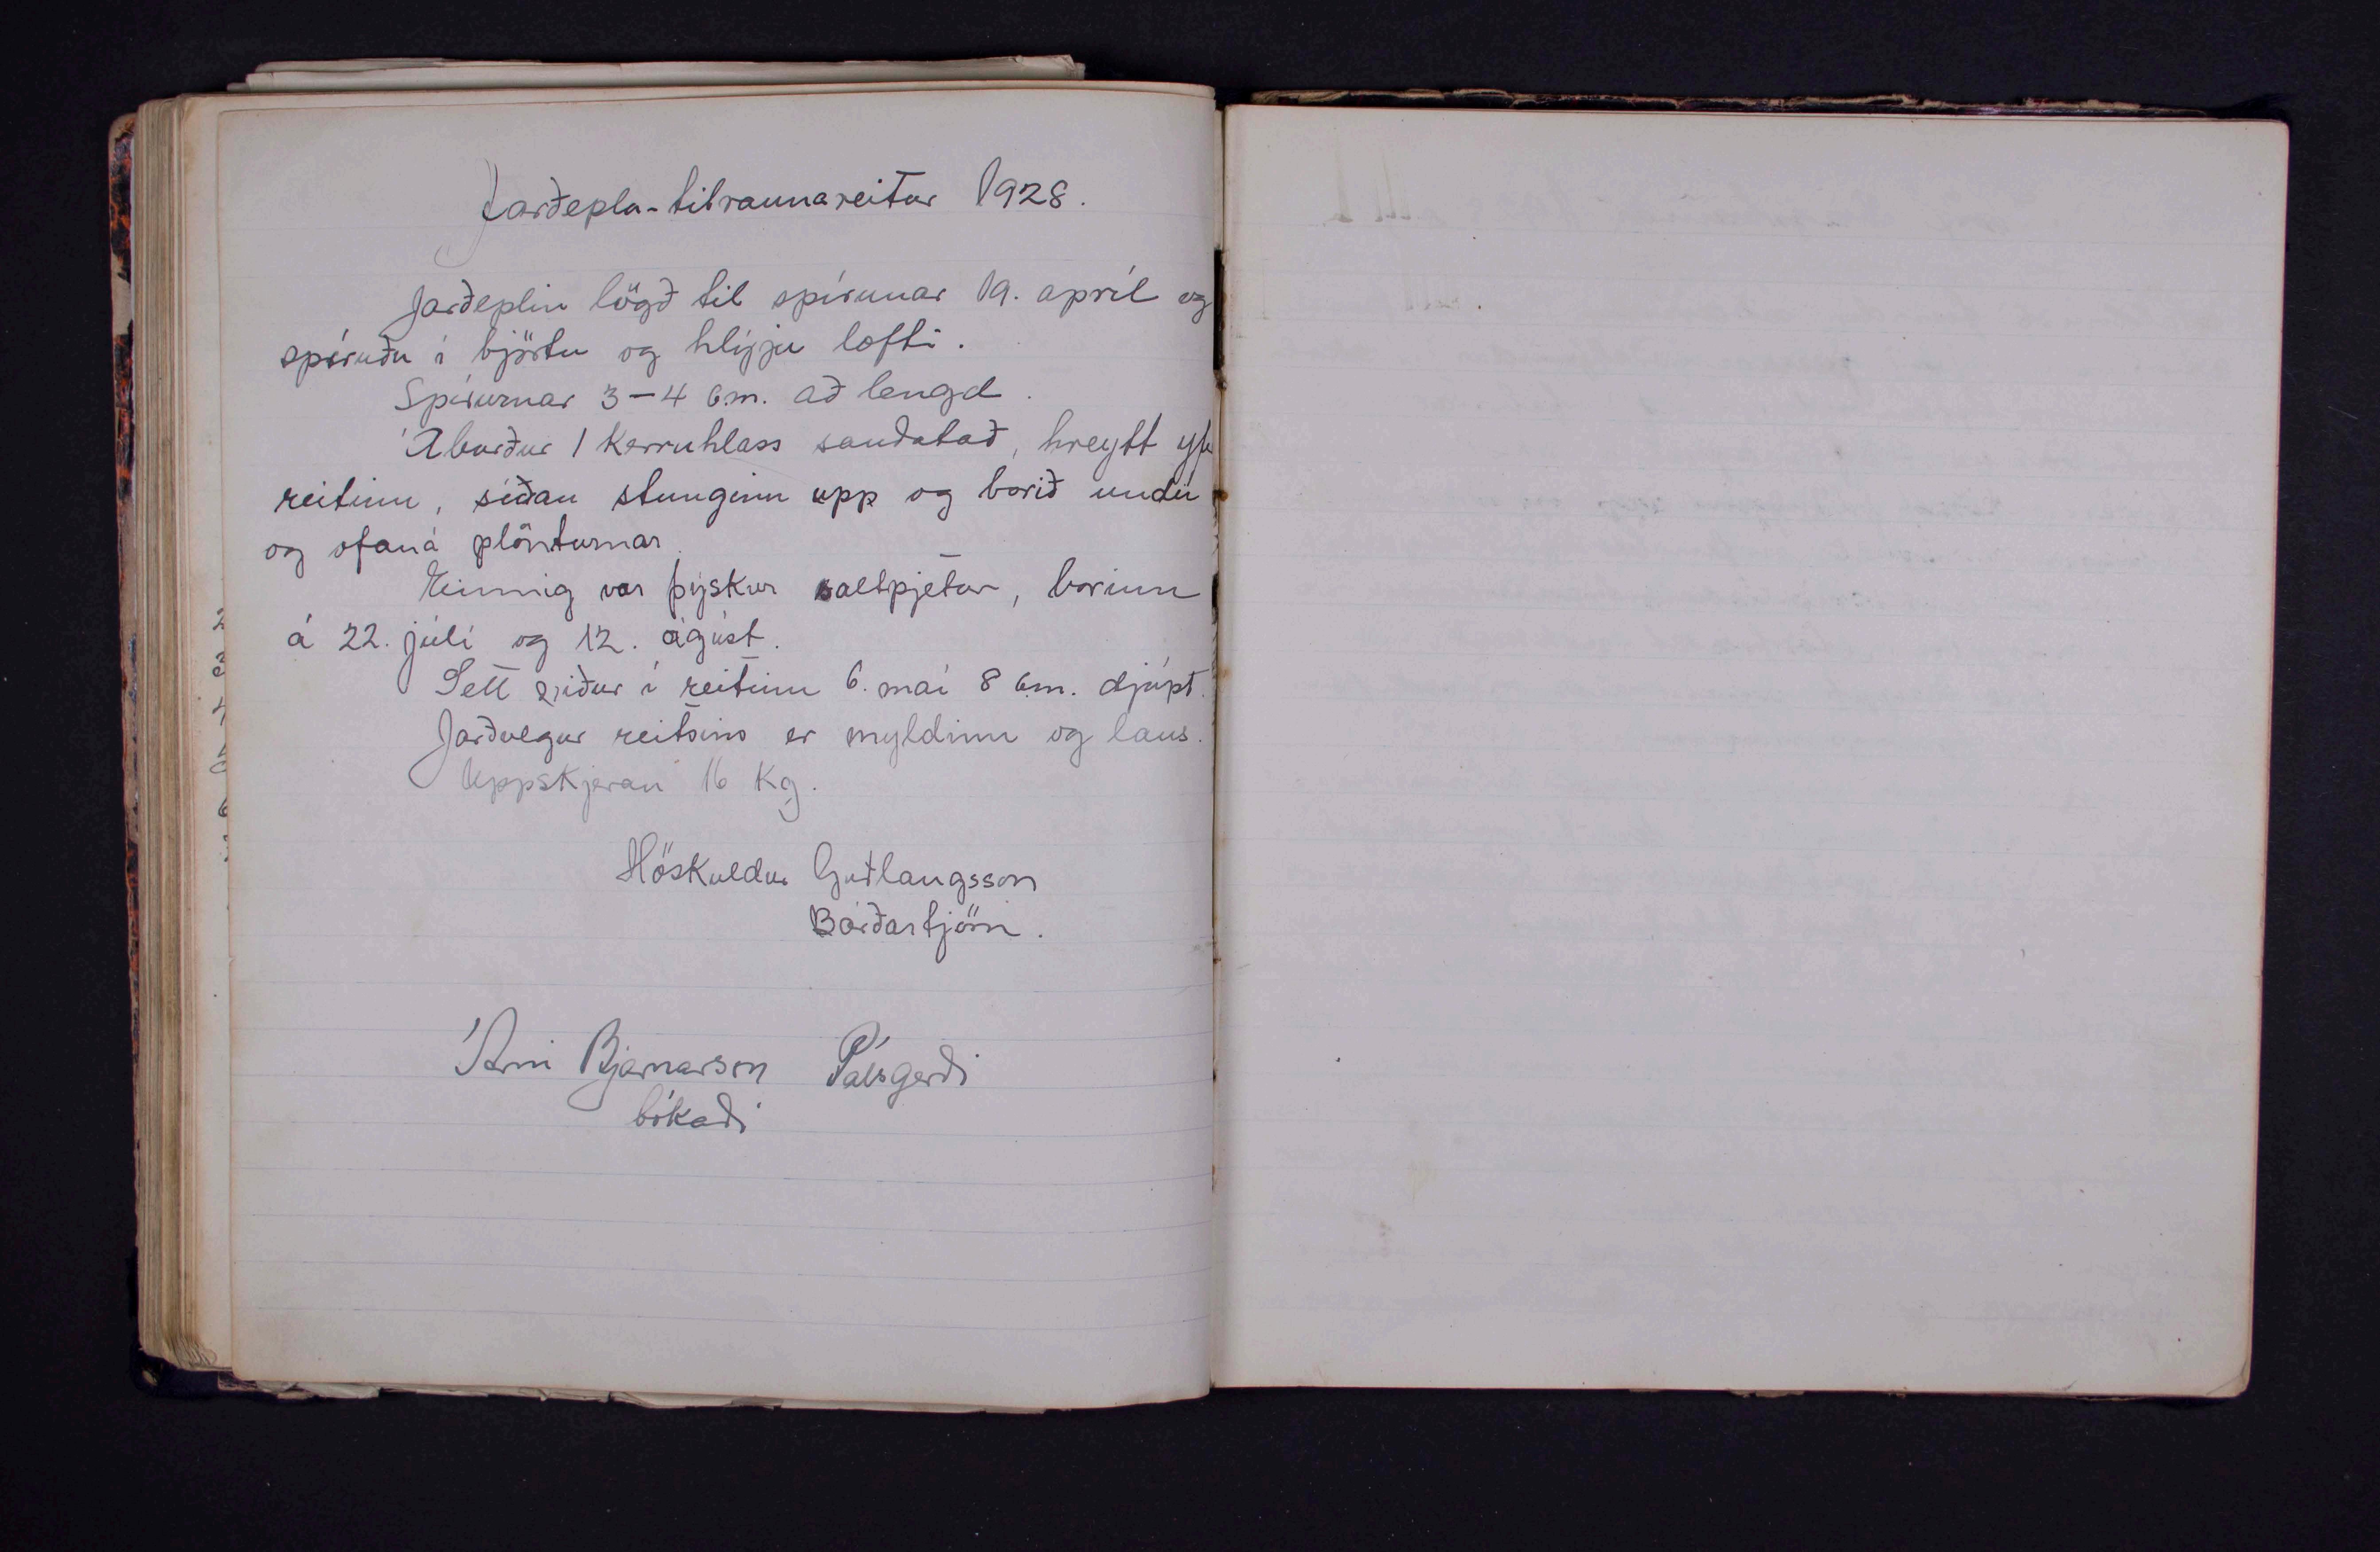 Jarðepla-tilraunareitur 1928.
Jarðeplin lögð til spírunar 19. apríl og
spíruðu í björtu og hlýju lofti.
Spírurnar 3-4 cm. að lengd.
Áburður 1 kerruhlass sauðatað, hreytt yfir
reitinn, síðan stunginn upp og borið undir
og ofaná plönturnar.
Einnig var þýskur saltpjetur, borinn
á 22. júlí og 12. ágúst.
Sett niður í reitinn 6. maí 8 cm. djúpt.
Jarðvegur reitsins er myldinn og laus.
Uppskjeran 16 Kg.
Höskuldur Guðlaugsson
Bárðartjörn.
Árni Bjarnarson Pálsgerði
bókaði